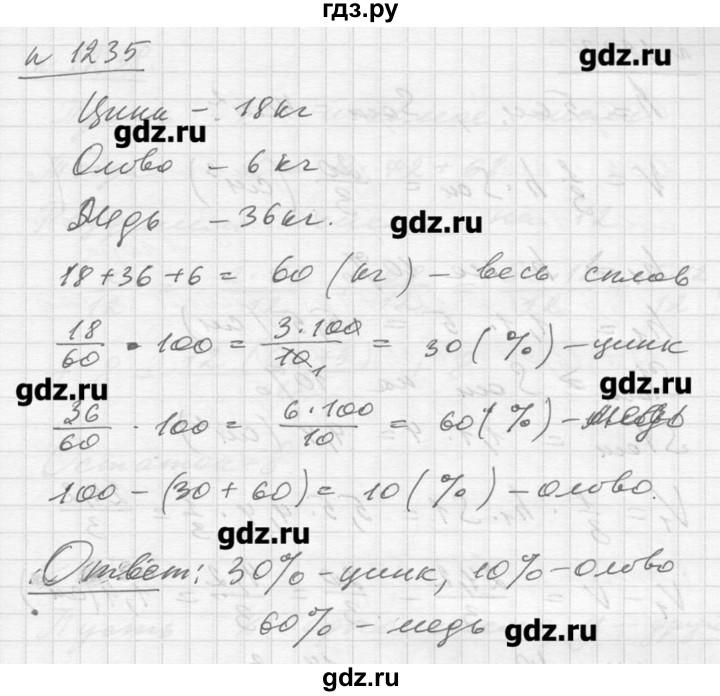 гдз.ру
gdz.ru
n 1235
Цинк – 18 кг
gdz.ru
Олово – 6 кг
Медь – 36 кг.
gdz.ru
18 + 36 + 6 = 60 (кг) – весь сплав
18/60 · 100 = 3·100/10 1 = 30 (%) – цинк
gdz.ru
gdz.ru
36/60 · 100 = 6·100/10 = 60 (%) – медь
100 – (30 + 60) = 10 (%) – олово.
gdz.ru
Ответ: 30% – цинк, 10% – олово
60% – медь
gdz.ru
gdz.ru